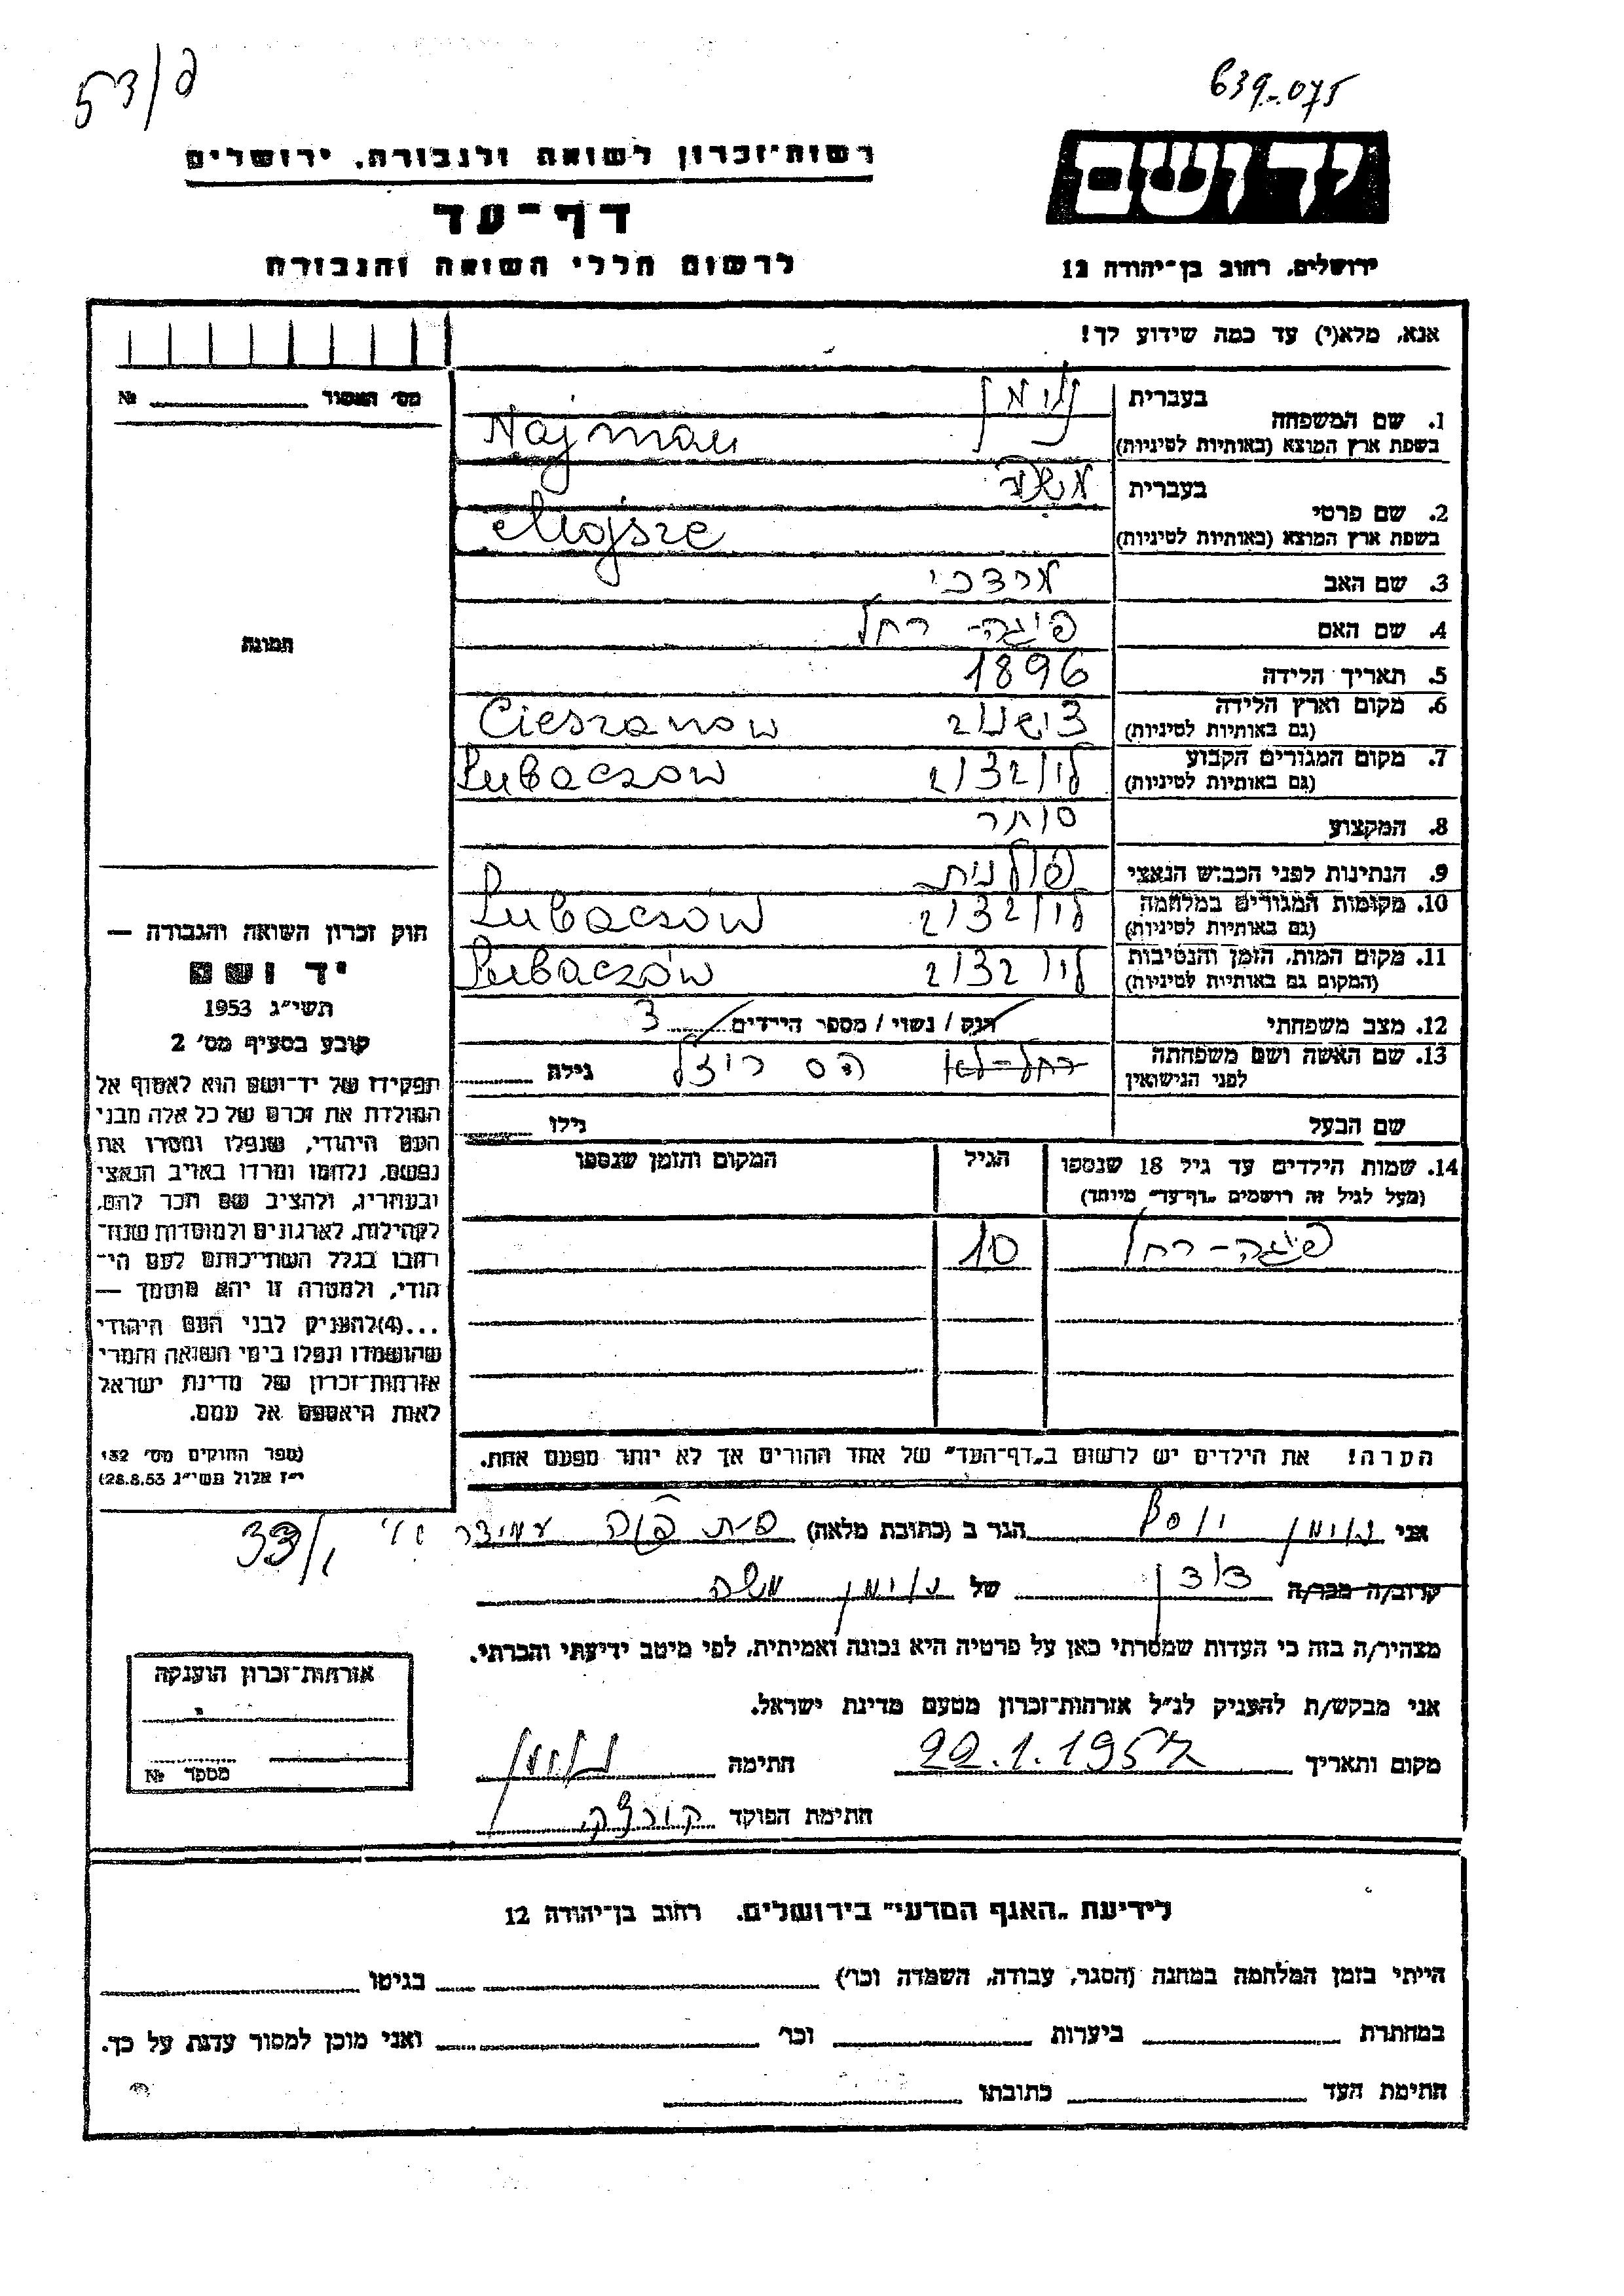 53/פ
639-075
רשות־זכרון לשואה ולגבורה, ירושלים
יד ושם
דף־עד
לרשום חללי השואה והגבורה
ירושלים, רחוב בן־יהודה 12
אנא, מלא(י) עד כמה שידוע לך!
מס' האסור № 
1. שם המשפחה
בעברית נוימן
בשפת ארץ המוצא (באותיות לטיניות) Najman
2. שם פרטי
בעברית משה
בשפת ארץ המוצא (באותיות לטיניות) Mojsze
3. שם האב מרדכי
4. שם האם פיגה-רחל
תמונה
5. תאריך הלידה 1896
6. מקום וארץ הלידה Cieszanow
(גם באותיות לטיניות)
7. מקום המגורים הקבוע Lubaczow
(גם באותיות לטיניות)
8. המקצוע סוחר
9. הנתינות לפני הכבוש הנאצי פולנית
10. מקומות המגורים במלחמה Lubaczów
(גם באותיות לטיניות)
11. מקום המות, הזמן והנסיבות Lubaczów
(המקום גם באותיות לטיניות)
12. מצב משפחתי רוק / נשוי / מספר הילדים 3
13. שם האשה ושם משפחתה רחל-לאה גילה
לפני הנישואין
שם הבעל גילו
14. שמות הילדים עד גיל 18 שנספו הגיל המקום והזמן שנספו
(מעל לגיל זה רושמים „דף־עד" מיוחד)
פיגה-רחל 10
הערה! את הילדים יש לרשום ב„דף־העד" של אחד ההורים אך לא יותר מפעם אחת.
חוק זכרון השואה והגבורה —
יד ושם
תשי"ג 1953
קובע בסעיף מס' 2
תפקידו של יד־ושם הוא לאסוף אל
המולדת את זכרם של כל אלה מבני
העם היהודי, שנפלו ומסרו את
נפשם, נלחמו ומרדו באויב הנאצי
ובעוזריו, ולהציב שם וזכר להם,
לקהילות, לארגונים ולמוסדות שנח־
רבו בגלל השתייכותם לעם הי־
הודי, ולמטרה זו יהא מוסמך —
...(4)להעניק לבני העם היהודי
שהושמדו ונפלו בימי השואה והמרי
אזרחות־זכרון של מדינת ישראל
לאות היאספם אל עמם.
(ספר החוקים מס' 132,
י"ז אלול תשי"ג 28.8.53)
אני נוימן יוסף הגר ב (כתובת מלאה) עמידר 33/1
קרוב/ה מכר/ה של נוימן משה
מצהיר/ה בזה כי העדות שמסרתי כאן על פרטיה היא נכונה ואמיתית, לפי מיטב ידיעתי והכרתי.
אני מבקש/ת להעניק לנ"ל אזרחות־זכרון מטעם מדינת ישראל.
מקום ותאריך 22.1.1957 חתימה נוימן
חתימת הפוקד
אזרחות־זכרון הוענקה
מספר №
לידיעת „האגף המדעי" בירושלים, רחוב בן־יהודה 12
הייתי בזמן המלחמה במחנה (הסגר, עבודה, השמדה וכו') בגיטו
במחתרת ביערות וכו' ואני מוכן למסור עדות על כך.
חתימת העד כתובתו